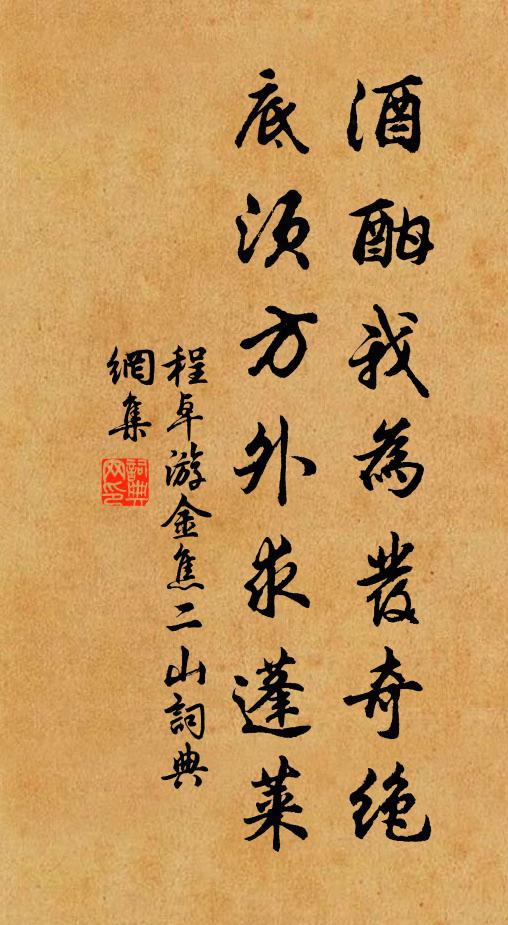 酒酣我為發奇絶
底須方外求蓬萊
程卓游金焦二山詞典
網集
詞典
网印